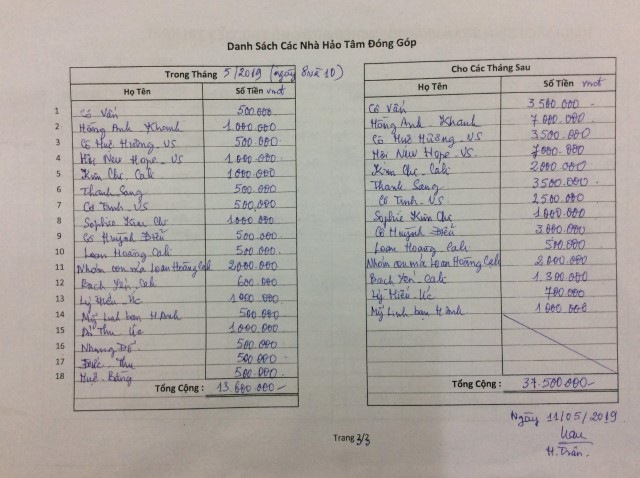 Danh Sách Các Nhà Hảo Tâm Đóng Góp
Trong Tháng 5/2019 (ngày 8 và 10)
Họ Tên Số Tiền vnđ
1 Cô Vấn 500.000
2 Hồng Anh Khanh 1.000.000
3 Cô Huê Hường_VS 500.000
4 Hội New Hope_VS 1.000.000
5 Kim Chi_Cali 1.000.000
6 Thanh Sang 500.000
7 Cô Trinh_VS 500.000
8 Sophie Kim Chi 1.000.000
9 Cô Huỳnh Điểu 500.000
10 Loan Hoàng_Cali 500.000
11 Nhóm con má Loan Hoàng Cali 2.000.000
12 Bạch Yến_Cali 600.000
13 Lý Hiếu_Úc 1.000.000
14 Mỹ Linh bạn H Anh 500.000
15 Thu Úc 1.000.000
16 Nhung 500.000
17 Đức_Thu 500.000
18 Huê_Băng 500.000
Tổng Cộng : 13.600.000
Cho Các Tháng Sau
Họ Tên Số Tiền vnđ
Cô Vấn 3.500.000
Hồng Anh_Khanh 7.000.000
Cô Huê Hường_VS 3.500.000
Hội New Hope_VS 7.000.000
Kim Chi_Cali 2.000.000
Thanh Sang 3.500.000
Cô Trinh_VS 2.500.000
Sophie Kim Chi 1.000.000
Cô Huỳnh Điểu 3.000.000
Loan Hoang_Cali 500.000
Nhóm con má Loan Hoàng Cali 2.000.000
Bạch Yến_Cali 1.300.000
Lý Hiếu_Úc 700.000
Mỹ Linh bạn H Anh 1.000.000
Tổng Cộng : 37.500.000
Ngày 11/05/2019
H.Trân.
Trang 3/3